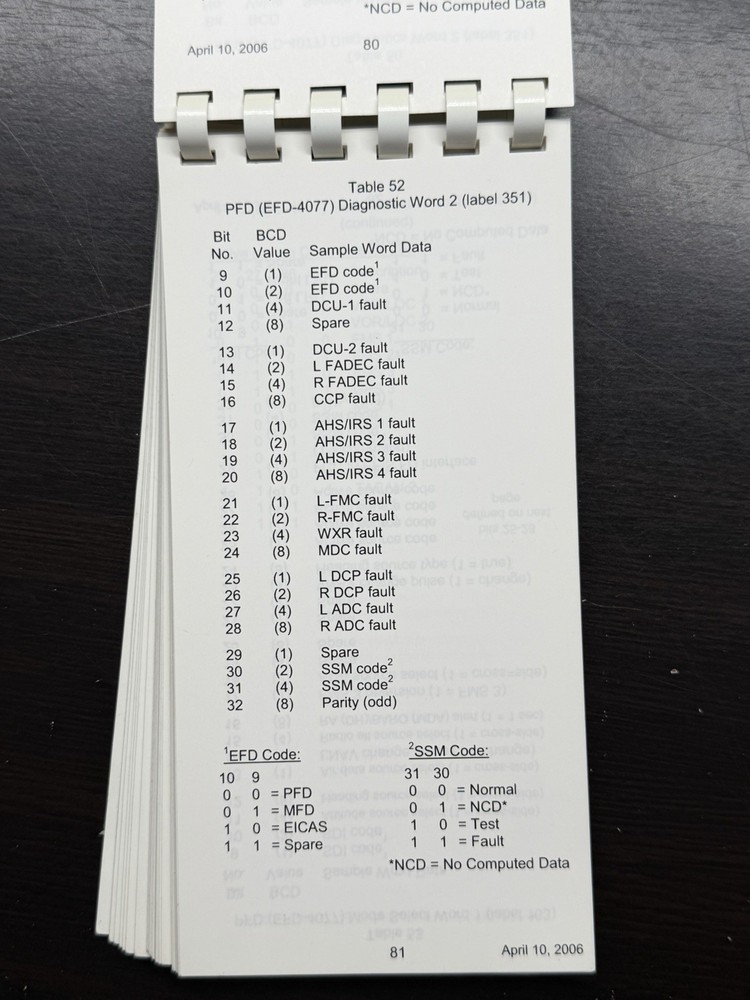 *NCD = No Computed Data
April 10, 2006 80
Table 52
PFD (EFD-4077) Diagnostic Word 2 (label 351)
Bit BCD
No. Value Sample Word Data
9 (1) EFD code¹
10 (2) EFD code¹
11 (4) DCU-1 fault
12 (8) Spare
13 (1) DCU-2 fault
14 (2) L FADEC fault
15 (4) R FADEC fault
16 (8) CCP fault
17 (1) AHS/IRS 1 fault
18 (2) AHS/IRS 2 fault
19 (4) AHS/IRS 3 fault
20 (8) AHS/IRS 4 fault
21 (1) L-FMC fault
22 (2) R-FMC fault
23 (4) WXR fault
24 (8) MDC fault
25 (1) L DCP fault
26 (2) R DCP fault
27 (4) L ADC fault
28 (8) R ADC fault
29 (1) Spare
30 (2) SSM code²
31 (4) SSM code²
32 (8) Parity (odd)
¹EFD Code: ²SSM Code:
10 9 31 30
0 0 = PFD 0 0 = Normal
0 1 = MFD 0 1 = NCD*
1 0 = EICAS 1 0 = Test
1 1 = Spare 1 1 = Fault
*NCD = No Computed Data
81 April 10, 2006